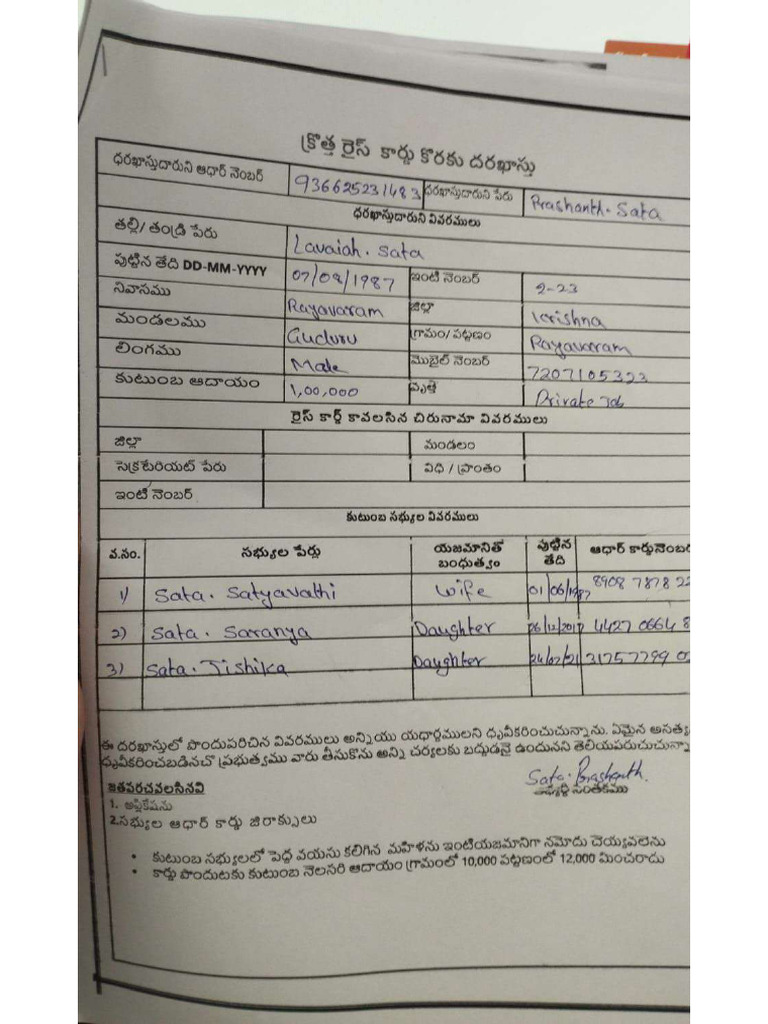 క్రొత్త రైస్ కార్డు కొరకు దరఖాస్తు
ధరఖాస్తుదారుని ఆధార్ నెంబర్ 936625231483 ధరఖాస్తుదారుని పేరు Prashanth. Sata
ధరఖాస్తుదారుని వివరములు
తల్లి/ తండ్రి పేరు Lavaiah. Sata
పుట్టిన తేది DD-MM-YYYY 07/08/1987 ఇంటి నెంబర్ 2-23
నివాసము Rayavaram జిల్లా Krishna
మండలము Guduru గ్రామం/ పట్టణం Rayavaram
లింగము Male మొబైల్ నెంబర్ 7207105323
కుటుంబ ఆదాయం 1,00,000 వృత్తి Private Job
రైస్ కార్డ్ కావలసిన చిరునామా వివరములు
జిల్లా మండలం
సెక్రటేరియట్ పేరు విధి / ప్రాంతం
ఇంటి నెంబర్
కుటుంబ సభ్యుల వివరములు
వ.నం. సభ్యుల పేర్లు యజమానితో బంధుత్వం పుట్టిన తేది ఆధార్ కార్డు నెంబర్
1) Sata. Satyavathi Wife 01/06/1987 8908 7878 22
2) Sata. Saranya Daughter 26/12/2017 4427 0664 8
3) Sata. Jishika Daughter 24/07/21 31757799 0
ఈ దరఖాస్తులో పొందుపరిచిన వివరములు అన్నియు యధార్ధములని ధృవీకరించుచున్నాను. ఏమైన అసత్య
ధృవీకరించబడినచొ ప్రభుత్వము వారు తీసుకొను అన్ని చర్యలకు బద్దుడనై ఉందునని తెలియపరుచుచున్నా
Sata. Prashanth.
జతపరచవలసినవి సంతకము
1. అప్లికేషను
2.సభ్యుల ఆధార్ కార్డు జిరాక్సులు
• కుటుంబ సభ్యులలో పెద్ద వయసు కలిగిన మహిళను ఇంటియజమానిగా నమోదు చెయ్యవలెను
• కార్డు పొందుటకు కుటుంబ నెలసరి ఆదాయం గ్రామంలో 10,000 పట్టణంలో 12,000 మించరాదు